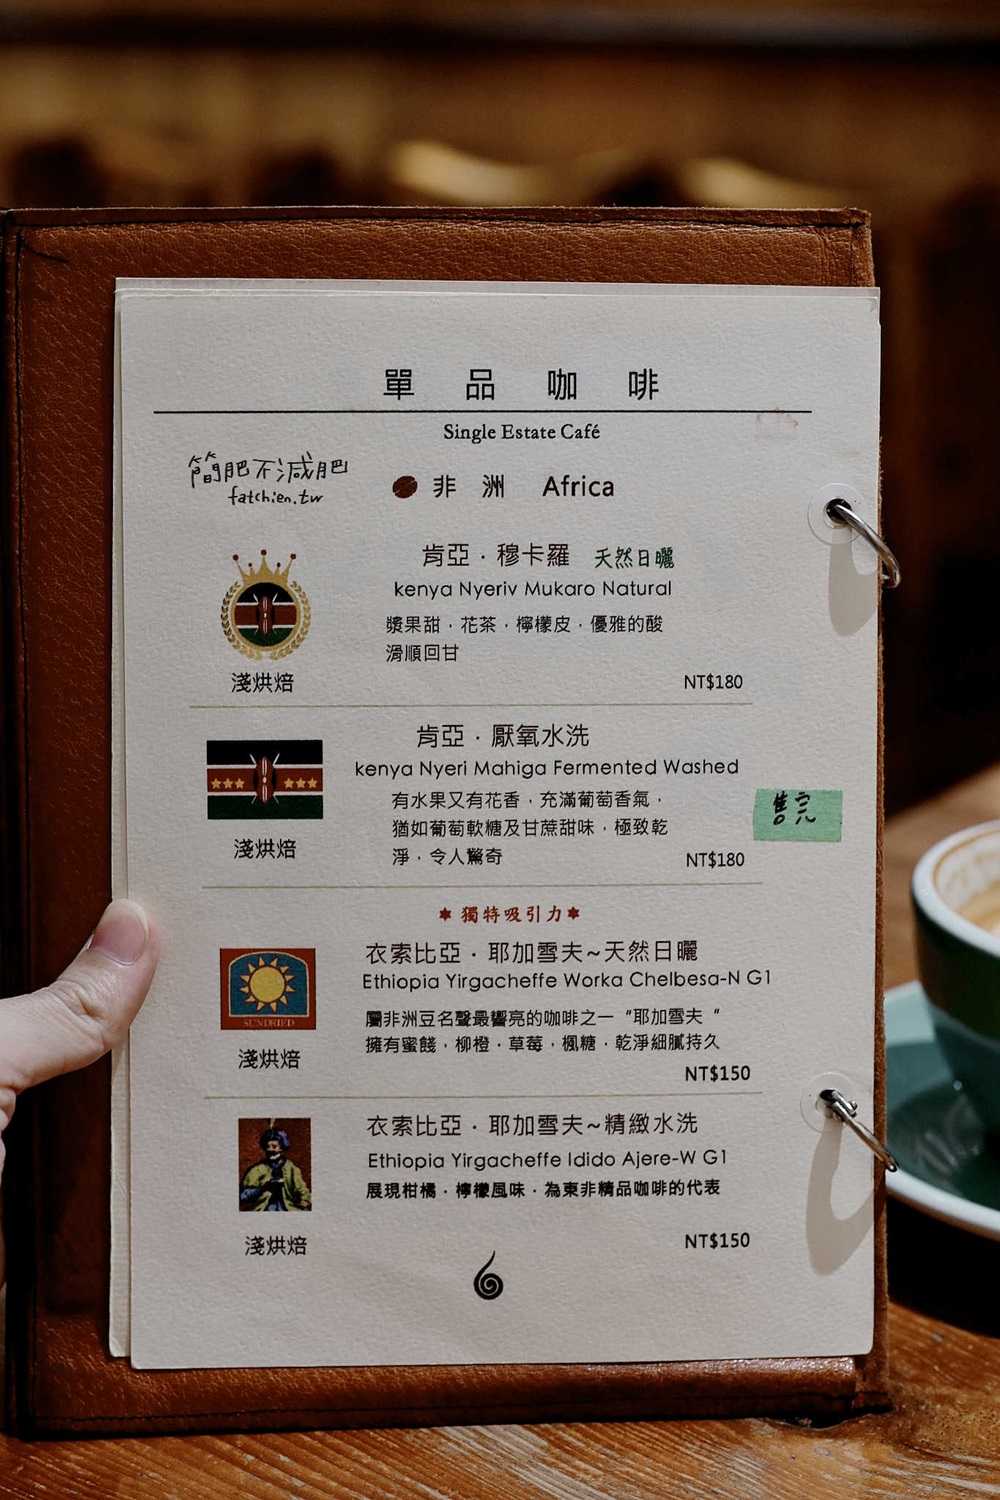 單品咖啡
Single Estate Café
簡肥不減肥
fatchien.tw
非洲 Africa
肯亞·穆卡羅 天然日曬
kenya Nyeriv Mukaro Natural
漿果甜·花茶·檸檬皮·優雅的酸
滑順回甘
淺烘焙
NT$180
肯亞·厭氧水洗
kenya Nyeri Mahiga Fermented Washed
有水果又有花香，充滿葡萄香氣，
猶如葡萄軟糖及甘蔗甜味，極致乾
淨，令人驚奇
淺烘焙
NT$180
售完
✶獨特吸引力✶
衣索比亞·耶加雪夫~天然日曬
Ethiopia Yirgacheffe Worka Chelbesa-N G1
屬非洲豆名聲最響亮的咖啡之一“耶加雪夫“
擁有蜜餞，柳橙，草莓，楓糖，乾淨細膩持久
SUNDRIED
淺烘焙
NT$150
衣索比亞·耶加雪夫~精緻水洗
Ethiopia Yirgacheffe Idido Ajere-W G1
展現柑橘·檸檬風味·為東非精品咖啡的代表
淺烘焙
NT$150